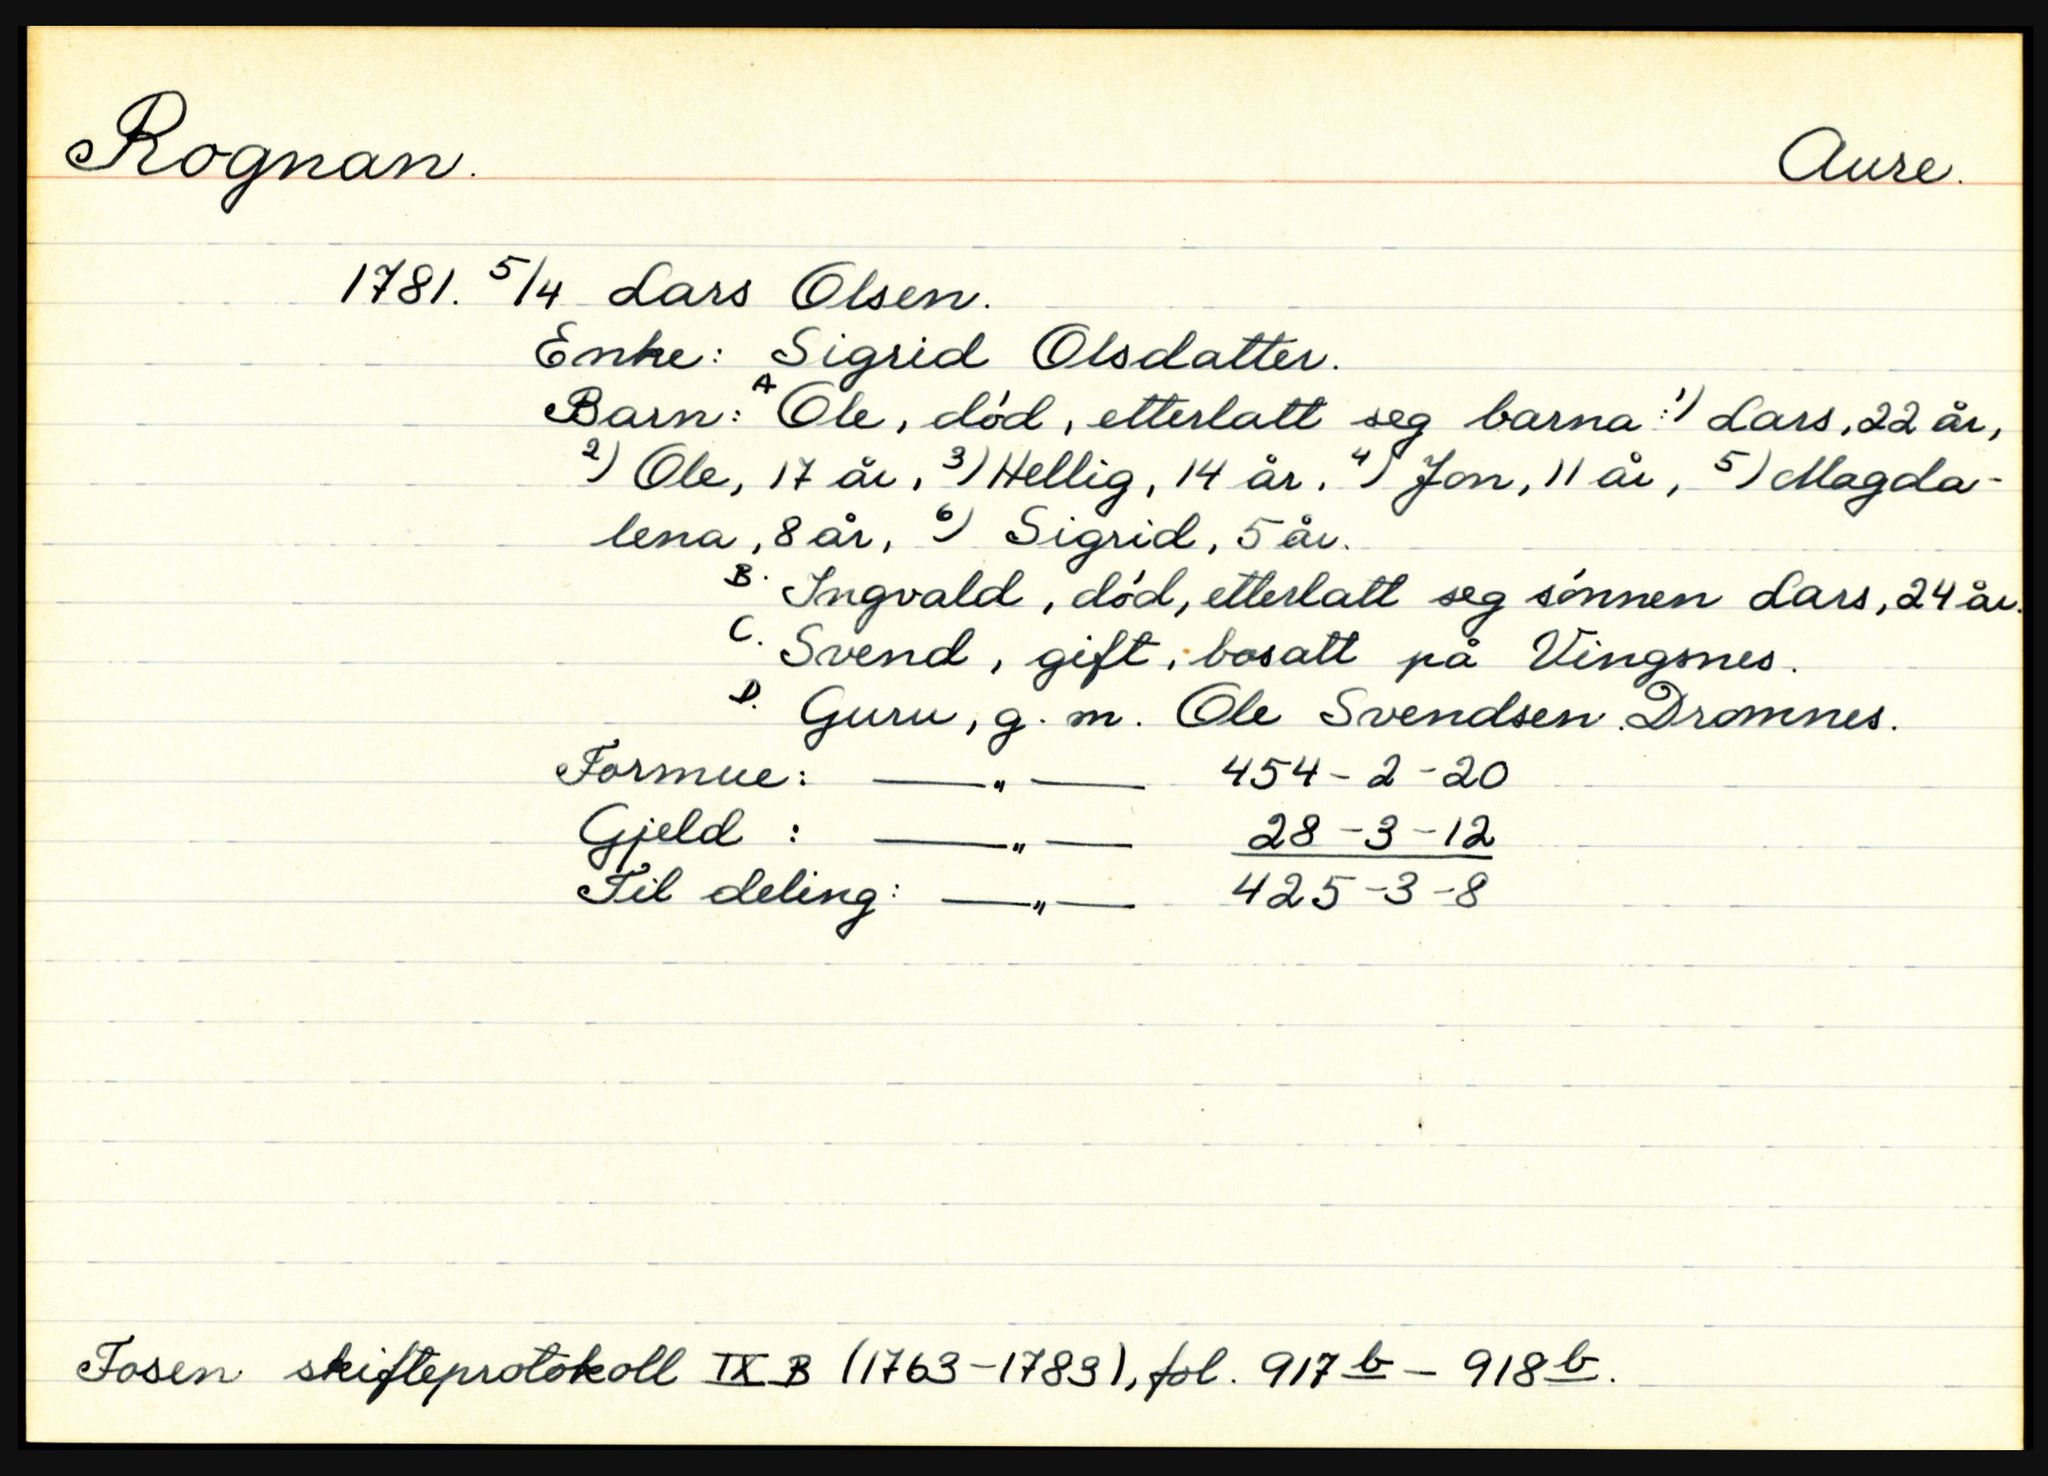 Rognan. Aure.
1781. 5/4 Lars Olsen.
Enke: Sigrid Olsdatter.
Barn: A Ole, død, etterlatt seg barna: 1) Lars, 22 år,
2) Ole, 17 år, 3) Hellig, 14 år. 4) Jon, 11 år, 5) Magda-
lena, 8 år, 6) Sigrid, 5 år.
B. Ingvald, død, etterlatt seg sønnen Lars, 24 år.
C. Svend, gift, bosatt på Vingsnes.
D. Guru, g. m. Ole Svendsen Dromnes.
Formue: —„— 454-2-20
Gjeld : —„— 28-3-12
Til deling: —„— 425-3-8
Fosen skifteprotokoll IX B (1763-1783), fol. 917b - 918b.